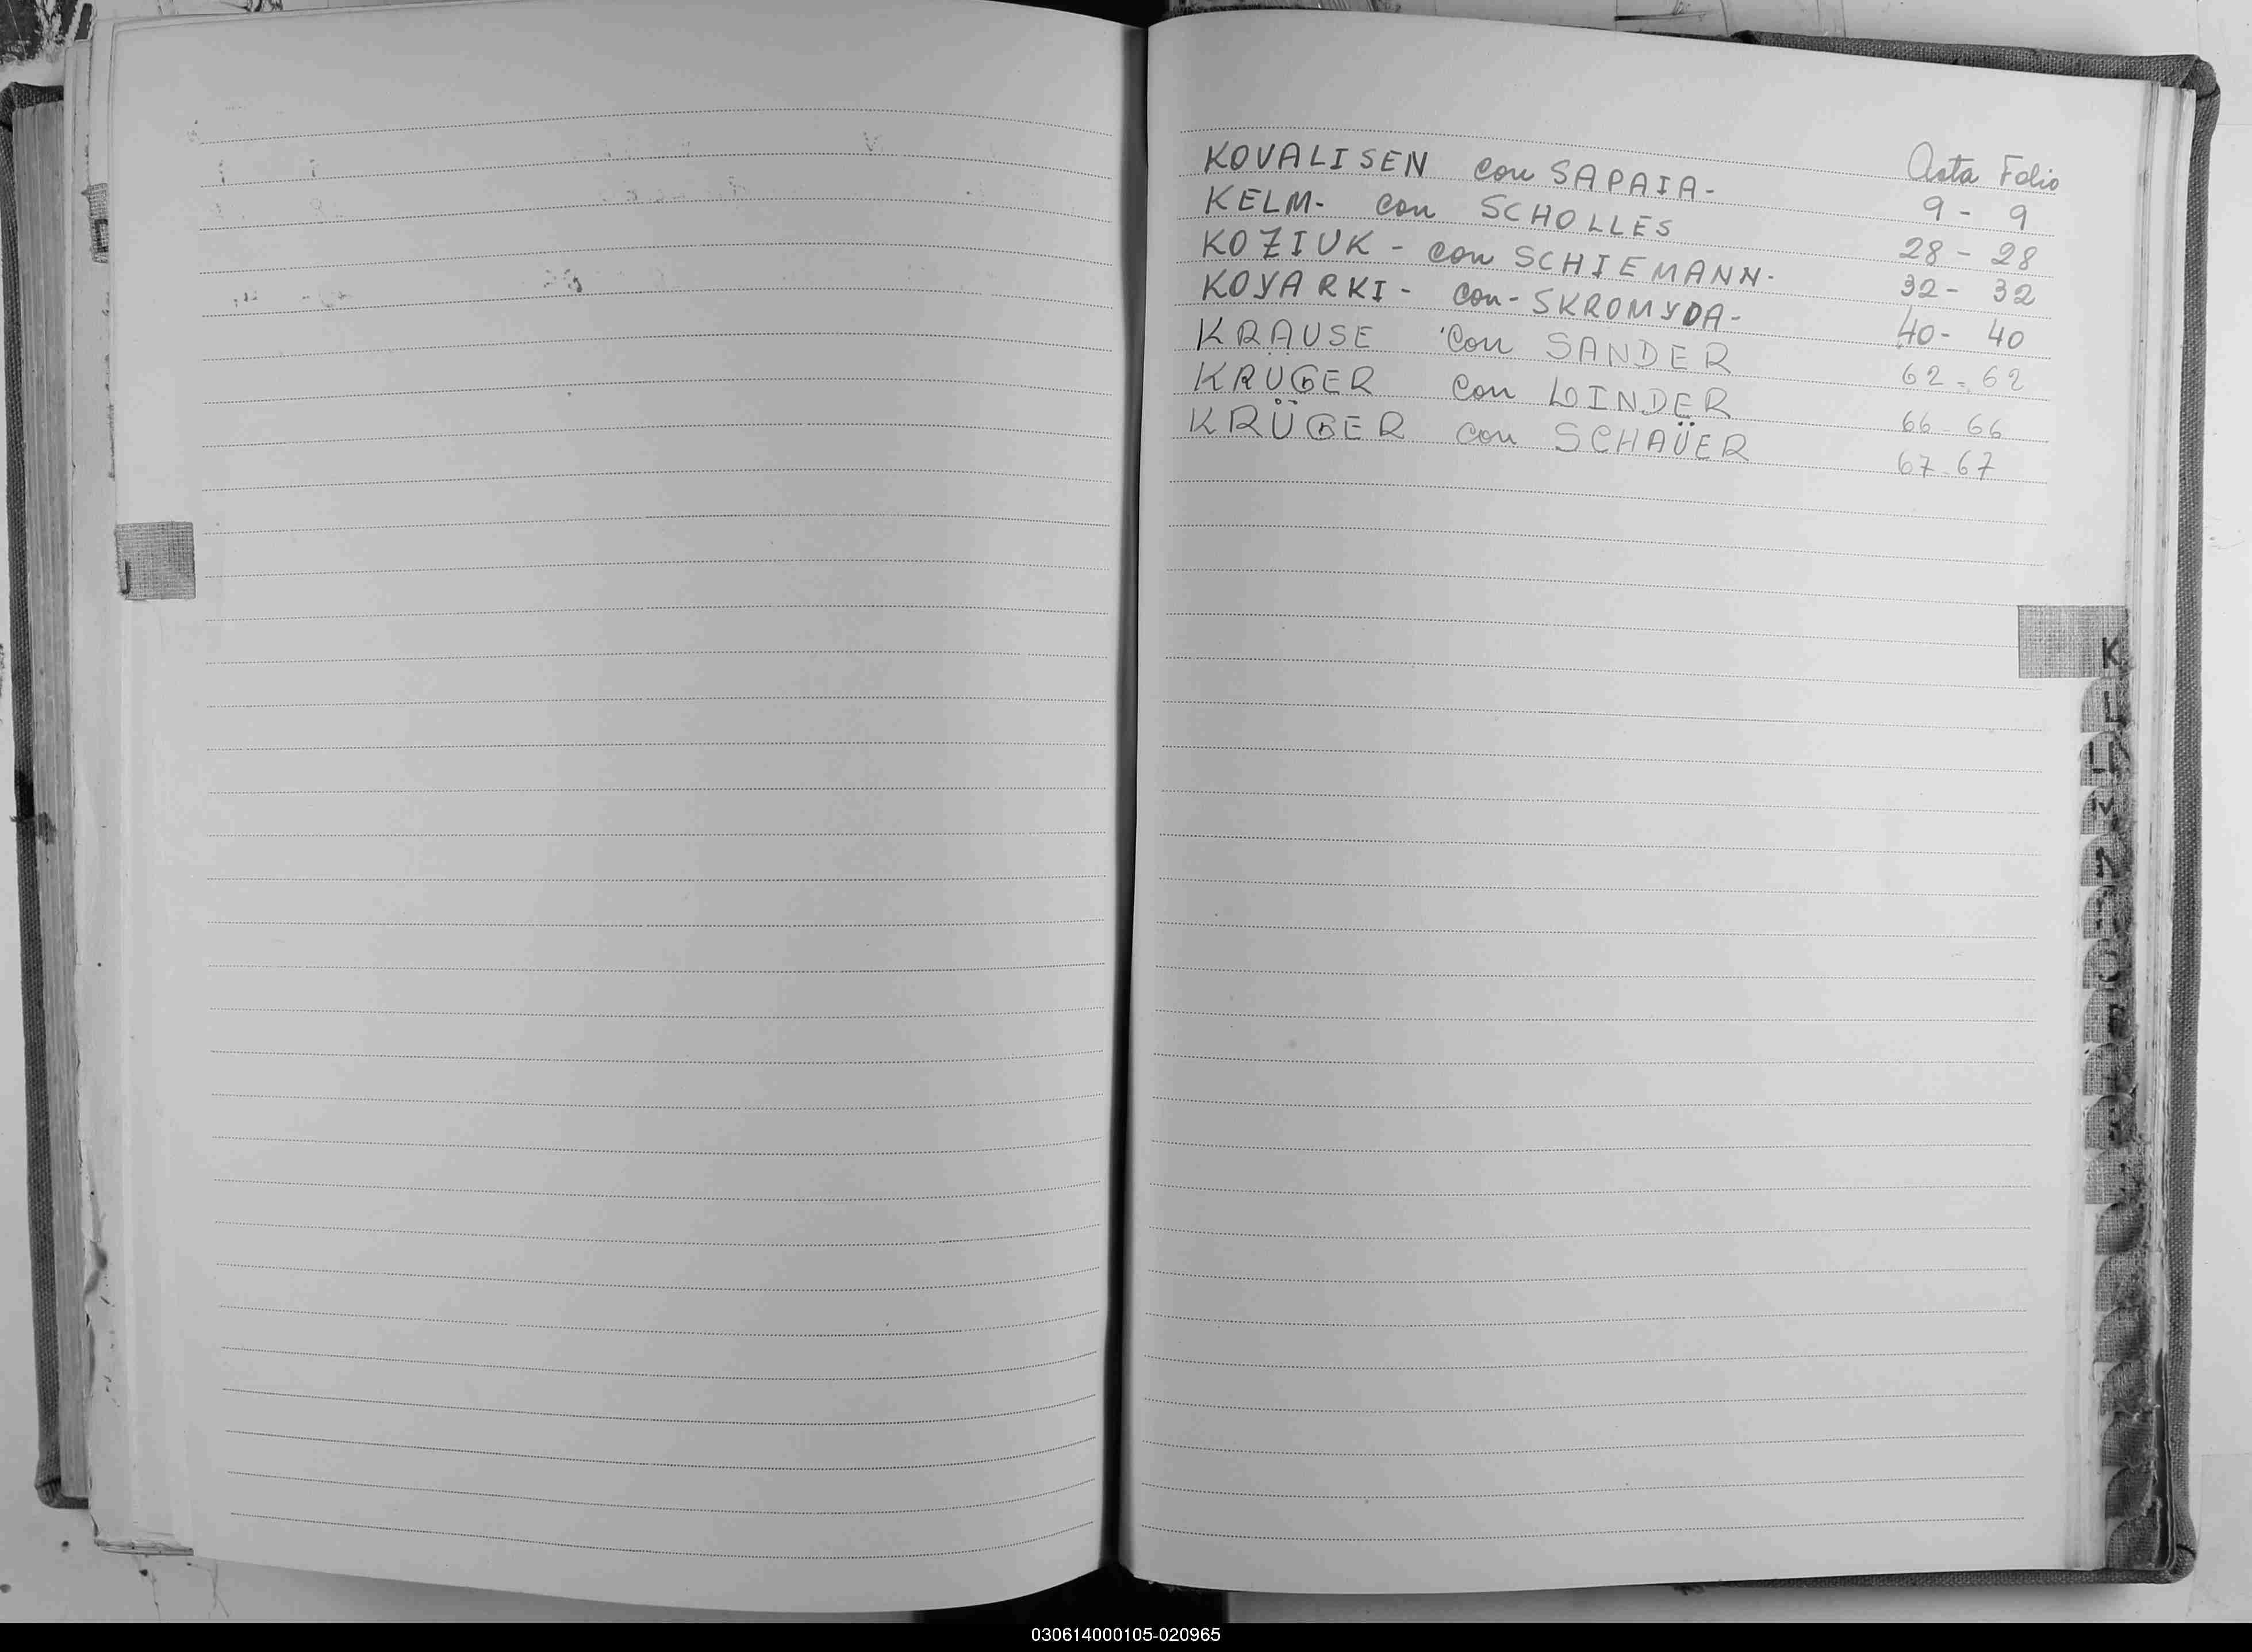 Acta Folio
KOVALISEN con SAPAIA- 9 - 9
KELM- con SCHOLLES 28 - 28
KOZIUK - con SCHIEMANN- 32 - 32
KOYARKI - con - SKROMYDA- 40 - 40
KRAUSE con SANDER 62 - 62
KRÜGER con LINDER 66 - 66
KRÜGER con SCHAÜER 67 - 67
J
K
L
M
030614000105-020965